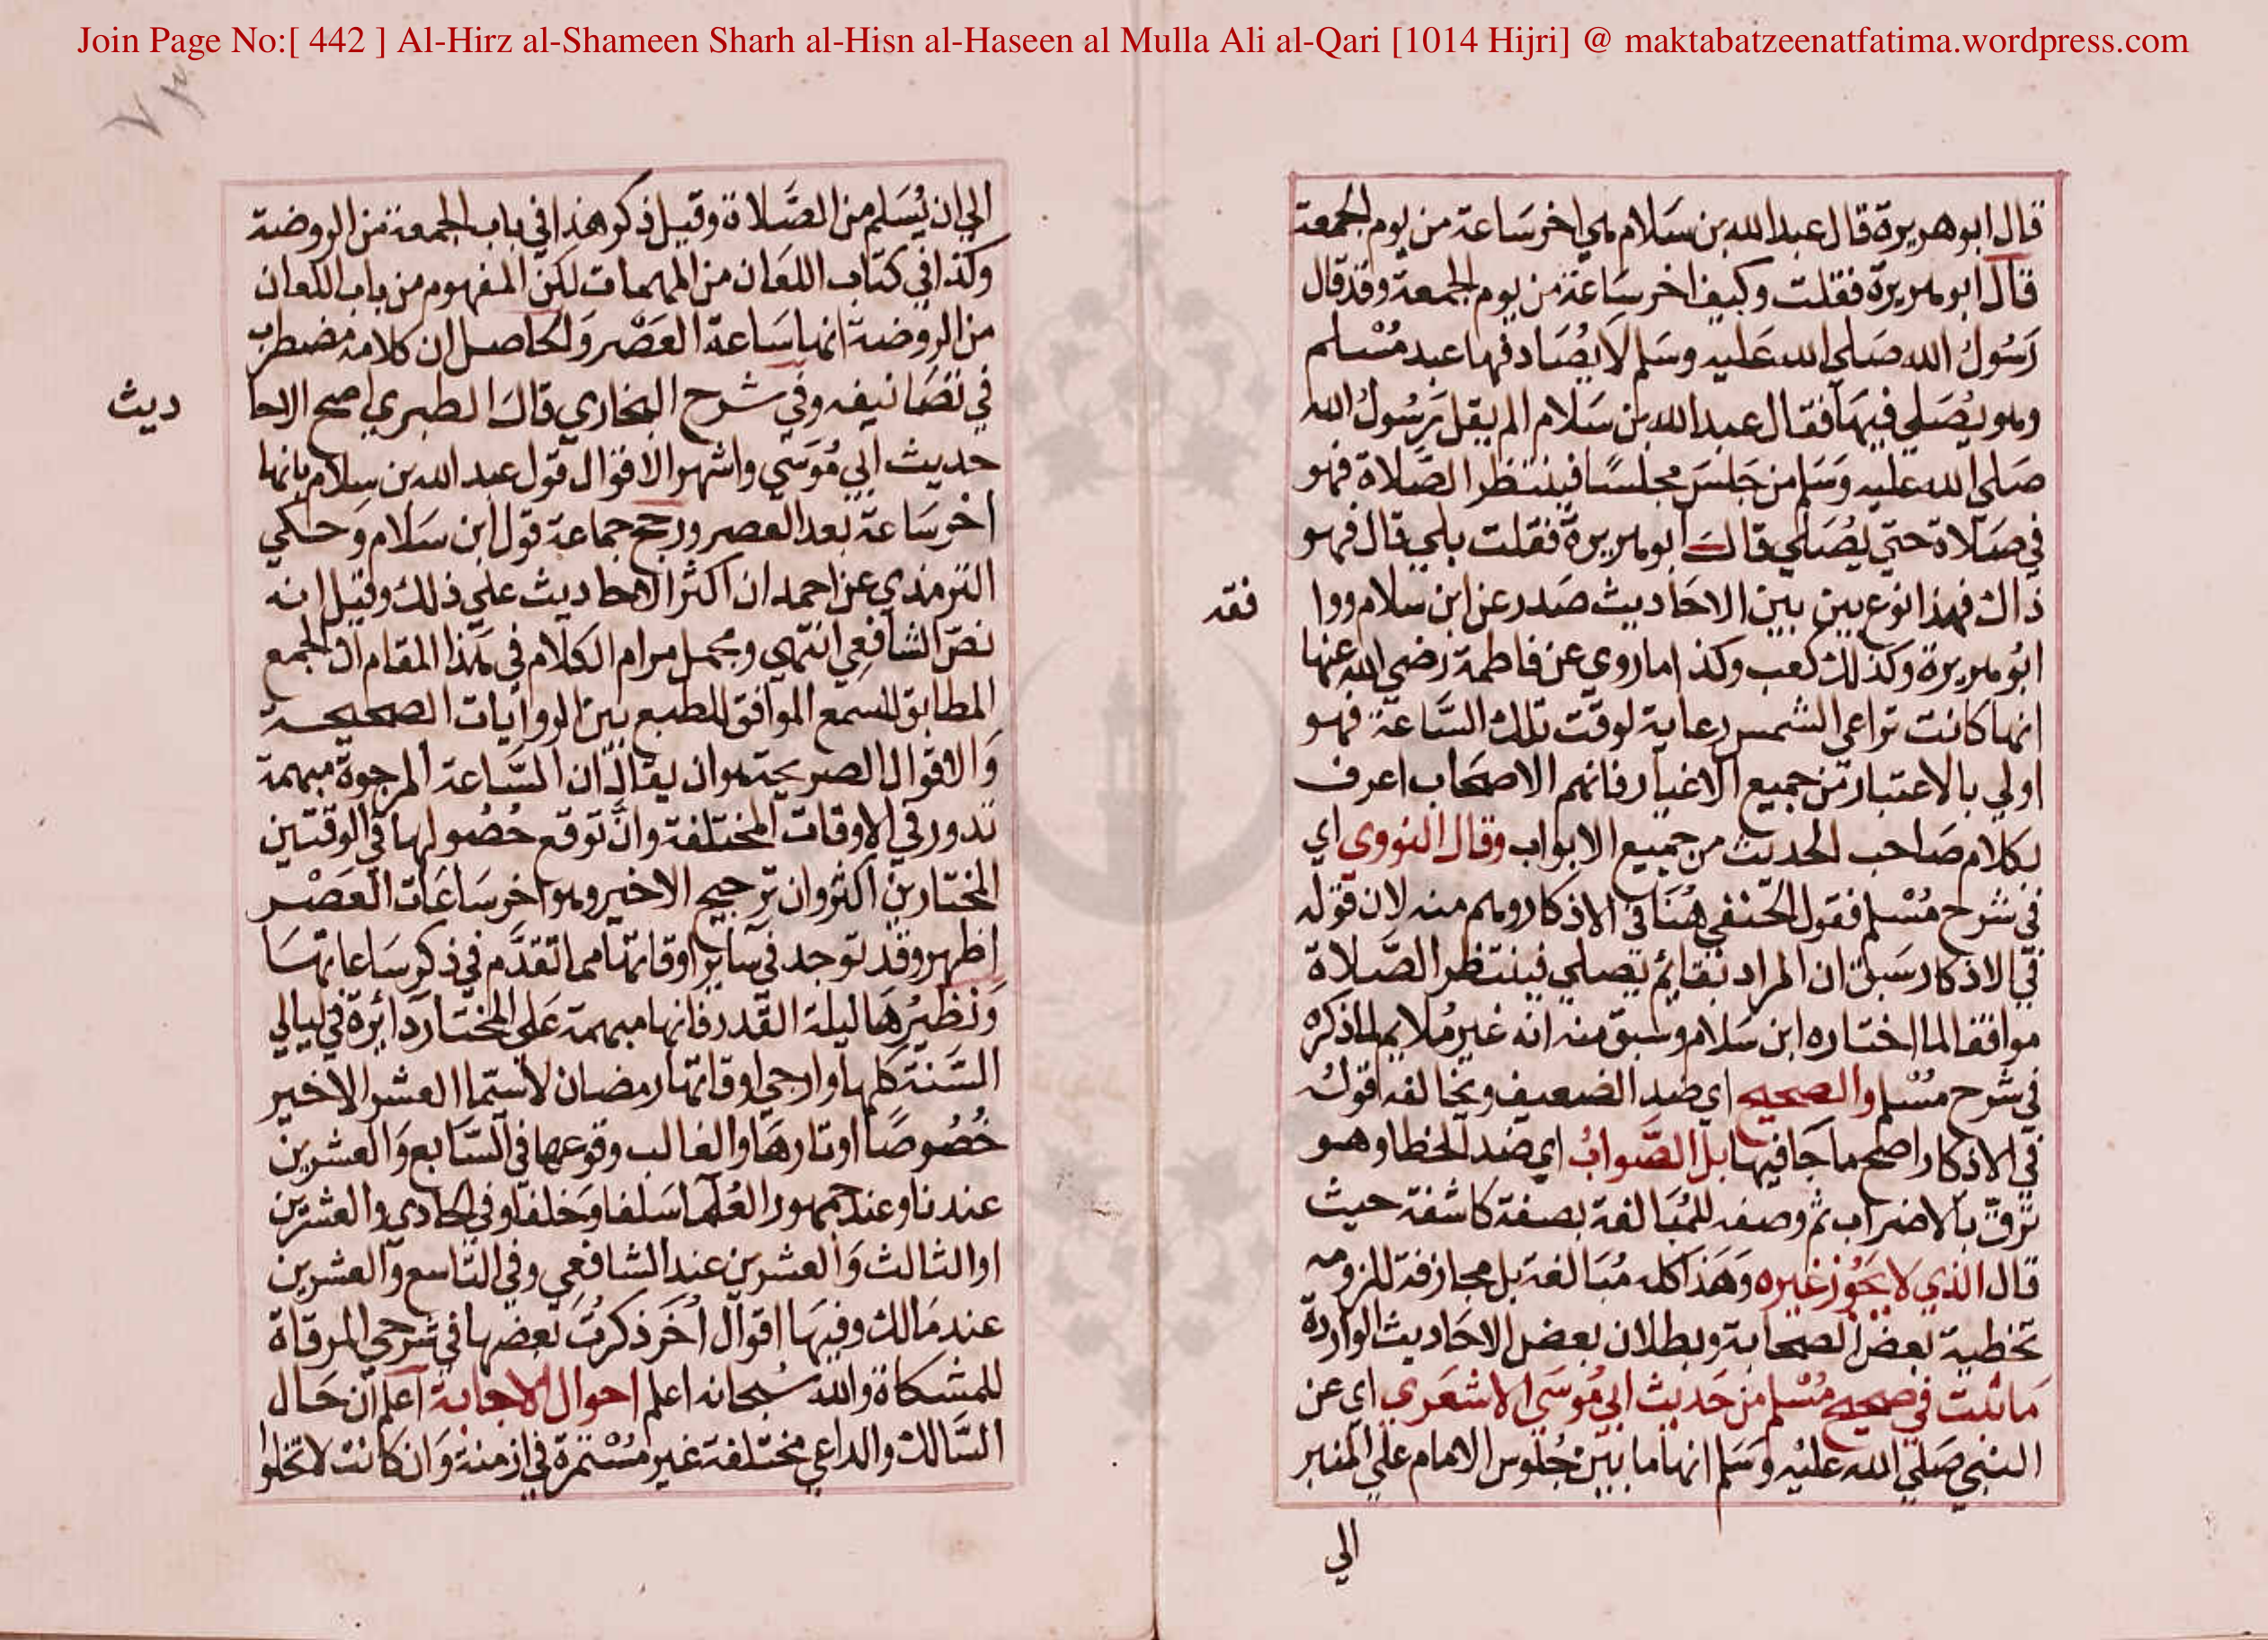 Join Page No:[ 442 ] Al-Hirz al-Shameen Sharh al-Hisn al-Haseen al Mulla Ali al-Qari [1014 Hijri] @ maktabatzeenatfatima.wordpress.com
قال ابو هريرة قال عبد الله بن سَلام هي اخر سَاعة من يوم الجمعة
قال ابو هريرة فقلت وكيف اخر سَاعة من يوم الجمعة وقد قال
رَسُولُ الله صَلي الله عَليه وسَلم لَا يُصَادفها عبد مُسْلم
وهو يُصَلي فيهَا فقال عبد الله بن سَلام الم يقل رَسُولُ الله
صَلي الله عليه وَسَلم من جَلسَ مجلسًا فينتظر الصَّلاة فهو
في صَلاة حتي يُصَلي قالَ ابو هريرة فقلت بلي قال فهو
ذاك فهذا نوع بين بين الاحَاديث صَدر عن ابن سلام ووا
فقه
ابُو هريرة وكذلك كعب وكذا ما روي عن فاطمة رضي الله عنها
انها كانت تراعي الشمس رعاية لوقت تلك السَّاعة فهو
اولي بالاعتبار من جميع الاغيار فانهم الاصحَاب اعرف
بكلام صَاحب الحديث من جميع الابواب وقال النووي اي
في شرح مُسْلم فقول الحنفي هُنَا في الاذكار وهم منه لان قوله
في الاذكار سَبق ان المراد بقائم يُصلي فينتظر الصَّلاة
موافقا لما اختاره ابن سَلام وسَبق منه انه غير مُلايم لما ذكره
في شرح مُسْلم والصحيح اي ضد الضعيف ويخالفه قولُه
في الاذكار اصح ما جَا فيها بل الصَّوابُ اي ضد الخطا وهو
ترقٍّ بالاضراب ثم وصفه للمُبَالغة بصفة كاشفة حيث
قال الذي لا يَجُوز غيره وَهَذا كله مُبَالغة بل مجازفة للزومه
تخطية بعض الصحابة وبطلان بعض الاحَاديث الواردة
مَا ثبت في صحيح مُسْلم من حَديث ابي مُوسَي الاشعَري اي عن
النبي صَلي الله عليْه وَسَلم انها ما بين جُلوس الامام علي المنبر
الي
الي ان يُسَلم من الصَّلاة وقيل ذكر هذا في باب الجمعة من الروضة
وكذا في كتاب اللعَان من المهمات لكن المفهوم من باب اللعان
من الروضة انها سَاعة العَصْر وَالحاصل ان كلامه مضطرب
في تصَانيفه وفي شرح البخاري قالَ الطبري اصح الاحا
ديث
حديث ابي مُوسَي واشهر الاقوال قول عبد الله بن سلام بانها
اخر سَاعة بعد العصر ورجح جماعة قول ابن سَلام وَحكي
الترمذي عن احمد ان اكثر الاحاديث علي ذلك وقيل انه
نصّ الشافعي انتهي ومجمل مرام الكلام في هذا المقام ان الجمع
المطابق للسمع الموافق للطبع بين الروايات الصحيحة
وَالاقوال الصريحة هو ان يقال ان السَّاعة المرجوة مبهمة
تدور في الاوقات المختلفة وانَّ توقع حُصُولها في الوقتين
المختارين اكثر وان ترجيح الاخير وهو اخر سَاعَات العَصْر
اظهر وقد توجد في ساير اوقاتها مما تقدَّم في ذكر سَاعاتها
وَنظيرُهَا ليلة القدر فانها مبهمة عَلي المختار دَائرة في ليالي
السَّنة كلها وارجي اوقاتها رمضان لا سيّما العشر الاخير
خُصُوصًا اوتارهَا والغالب وقوعها في السَّابع وَالعشرين
عندنا وعند جمهور العُلمَا سَلفا وَخلفا وفي الحادي والعشرين
او الثالث وَالعشرين عند الشافعي وفي التاسع وَالعشرين
عند مَالك وفيهَا اقوال اُخَر ذكرتُ بَعضها في شرحي المرقاة
للمشكاة والله سُبحانه اعلم احوال الاجابة اعلم ان حَال
السَّالك والداعي مختلفة غير مُسْتمرة في ازمنة وَان كانت لا تخلوا